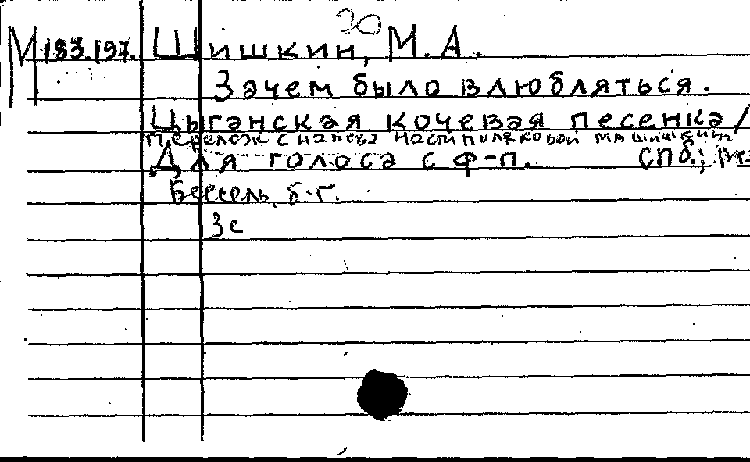 20
М 183.197. Шишкин, М. А.
Зачем было влюбляться.
Цыганская кочевая песенка /
Перелож с напева Насти Поляковой М А Шишкин
Для голоса с ф-п. СПб.;
Бессель, б-г.
3с